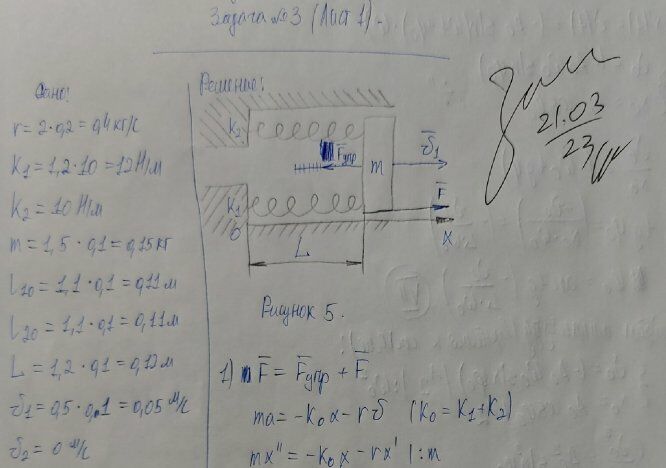 Задача №3 (Лист 1).
Дано:
r = 2·0,2 = 0,4 кг/с
K₁ = 1,2·10 = 12 Н/м
K₂ = 10 Н/м
m = 1,5·0,1 = 0,15 кг
l₁₀ = 1,1·0,1 = 0,11 м
l₂₀ = 1,1·0,1 = 0,11 м
L = 1,2·0,1 = 0,12 м
υ₁ = 0,5·0,1 = 0,05 м/с
υ₂ = 0 м/с
Решение:
K₂
F̅упр
m
υ̅₁
K₁
F̅
0
x
L
Рисунок 5.
1) F̅ = F̅упр + F̅
ma = -K₀x - rυ (K₀ = K₁+K₂)
mx'' = -K₀x - rx' |:m
21.03
23